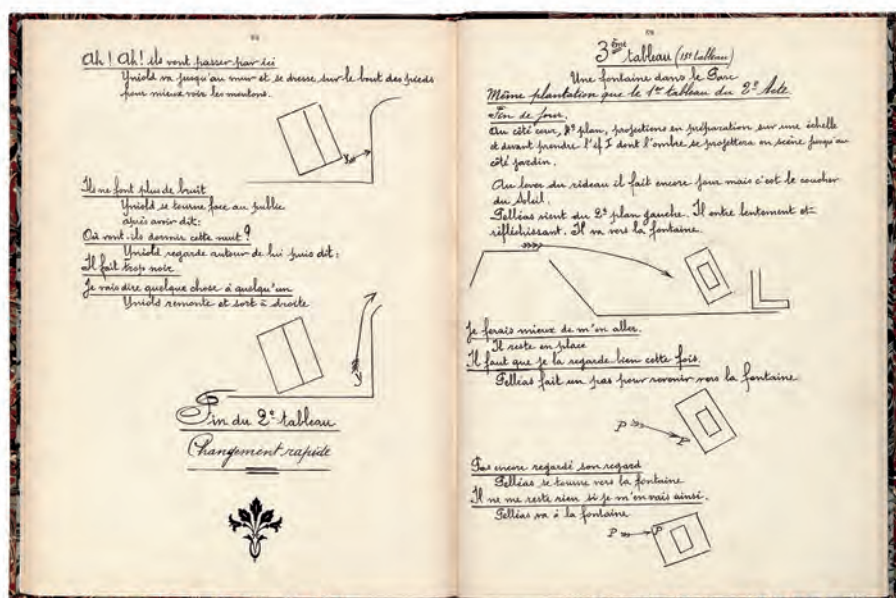 Ah! Ah! ils vont passer par ici
Yniold va jusqu'au mur et se dresse sur le bout des pieds
pour mieux voir les moutons.
Ils ne font plus de bruit
Yniold se tourne face au public
après avoir dit:
Où vont-ils dormir cette nuit?
Yniold regarde autour de lui puis dit:
Il fait trop noir
Je vais dire quelque chose à quelqu'un
Yniold remonte et sort à droite
Y
Fin du 2e tableau
Changement rapide
3ème tableau (13e tableau)
Une fontaine dans le Parc
Même plantation que le 1er tableau du 2e Acte
Fin de jour.
Au côté cour, plan, projections en préparation sur une échelle
et devant prendre l'if I dont l'ombre se projettera en scène jusqu'au
côté jardin.
Au lever du rideau il fait encore jour mais c'est le coucher
du soleil.
Pelléas vient du 2e plan gauche. Il entre lentement et
réfléchissant. Il va vers la fontaine.
Je ferais mieux de m'en aller.
Il reste en place
Il faut que je la regarde bien cette fois.
Pelléas fait un pas pour revenir vers la fontaine
P P
Pas encore regardé son regard
Pelléas se tourne vers la fontaine
Il ne me reste rien si je m'en vais ainsi.
Pelléas va à la fontaine
P P